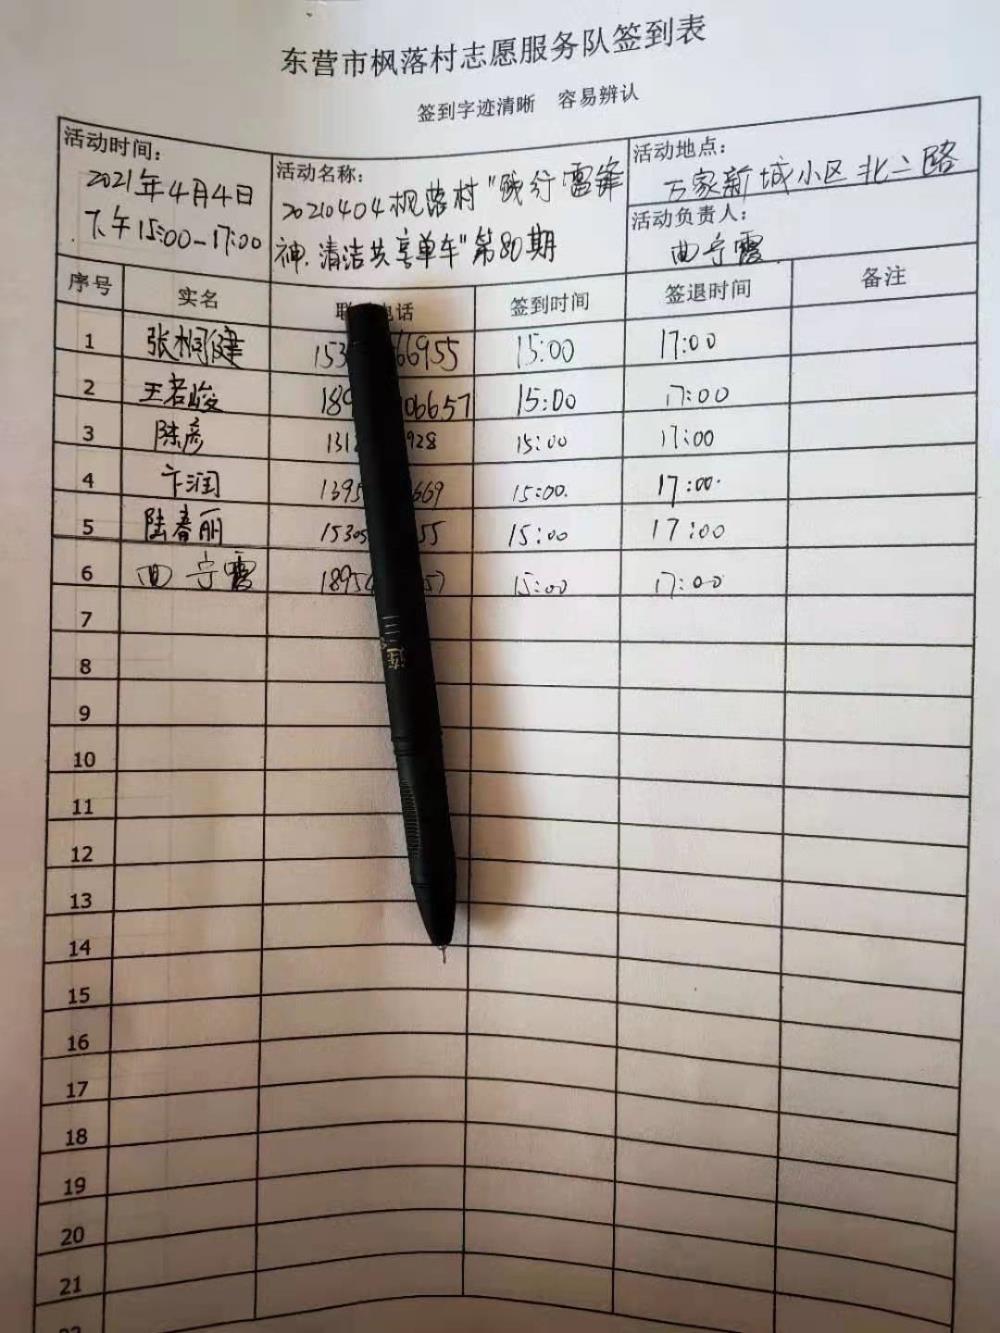 东营市枫落村志愿服务队签到表
签到字迹清晰 容易辨认
活动时间：
2021年4月4日
下午15:00-17:00
活动名称：
20210404枫落村"践行雷锋
神.清洁共享单车"第80期
活动地点：
万家新城小区北二路
活动负责人：
曲宁霞
序号 实名 联 电话 签到时间 签退时间 备注
1 张桐健 153 66955 15:00 17:00
2 王若峻 189 06657 15:00 17:00
3 陈彦 131 928 15:00 17:00
4 卞润 1395 669 15:00. 17:00.
5 陆春丽 15305 55 15:00 17:00
6 曲宁霞 18954 57 15:00 17:00
7
8
9
10
11
12
13
14
15
16
17
18
19
20
21